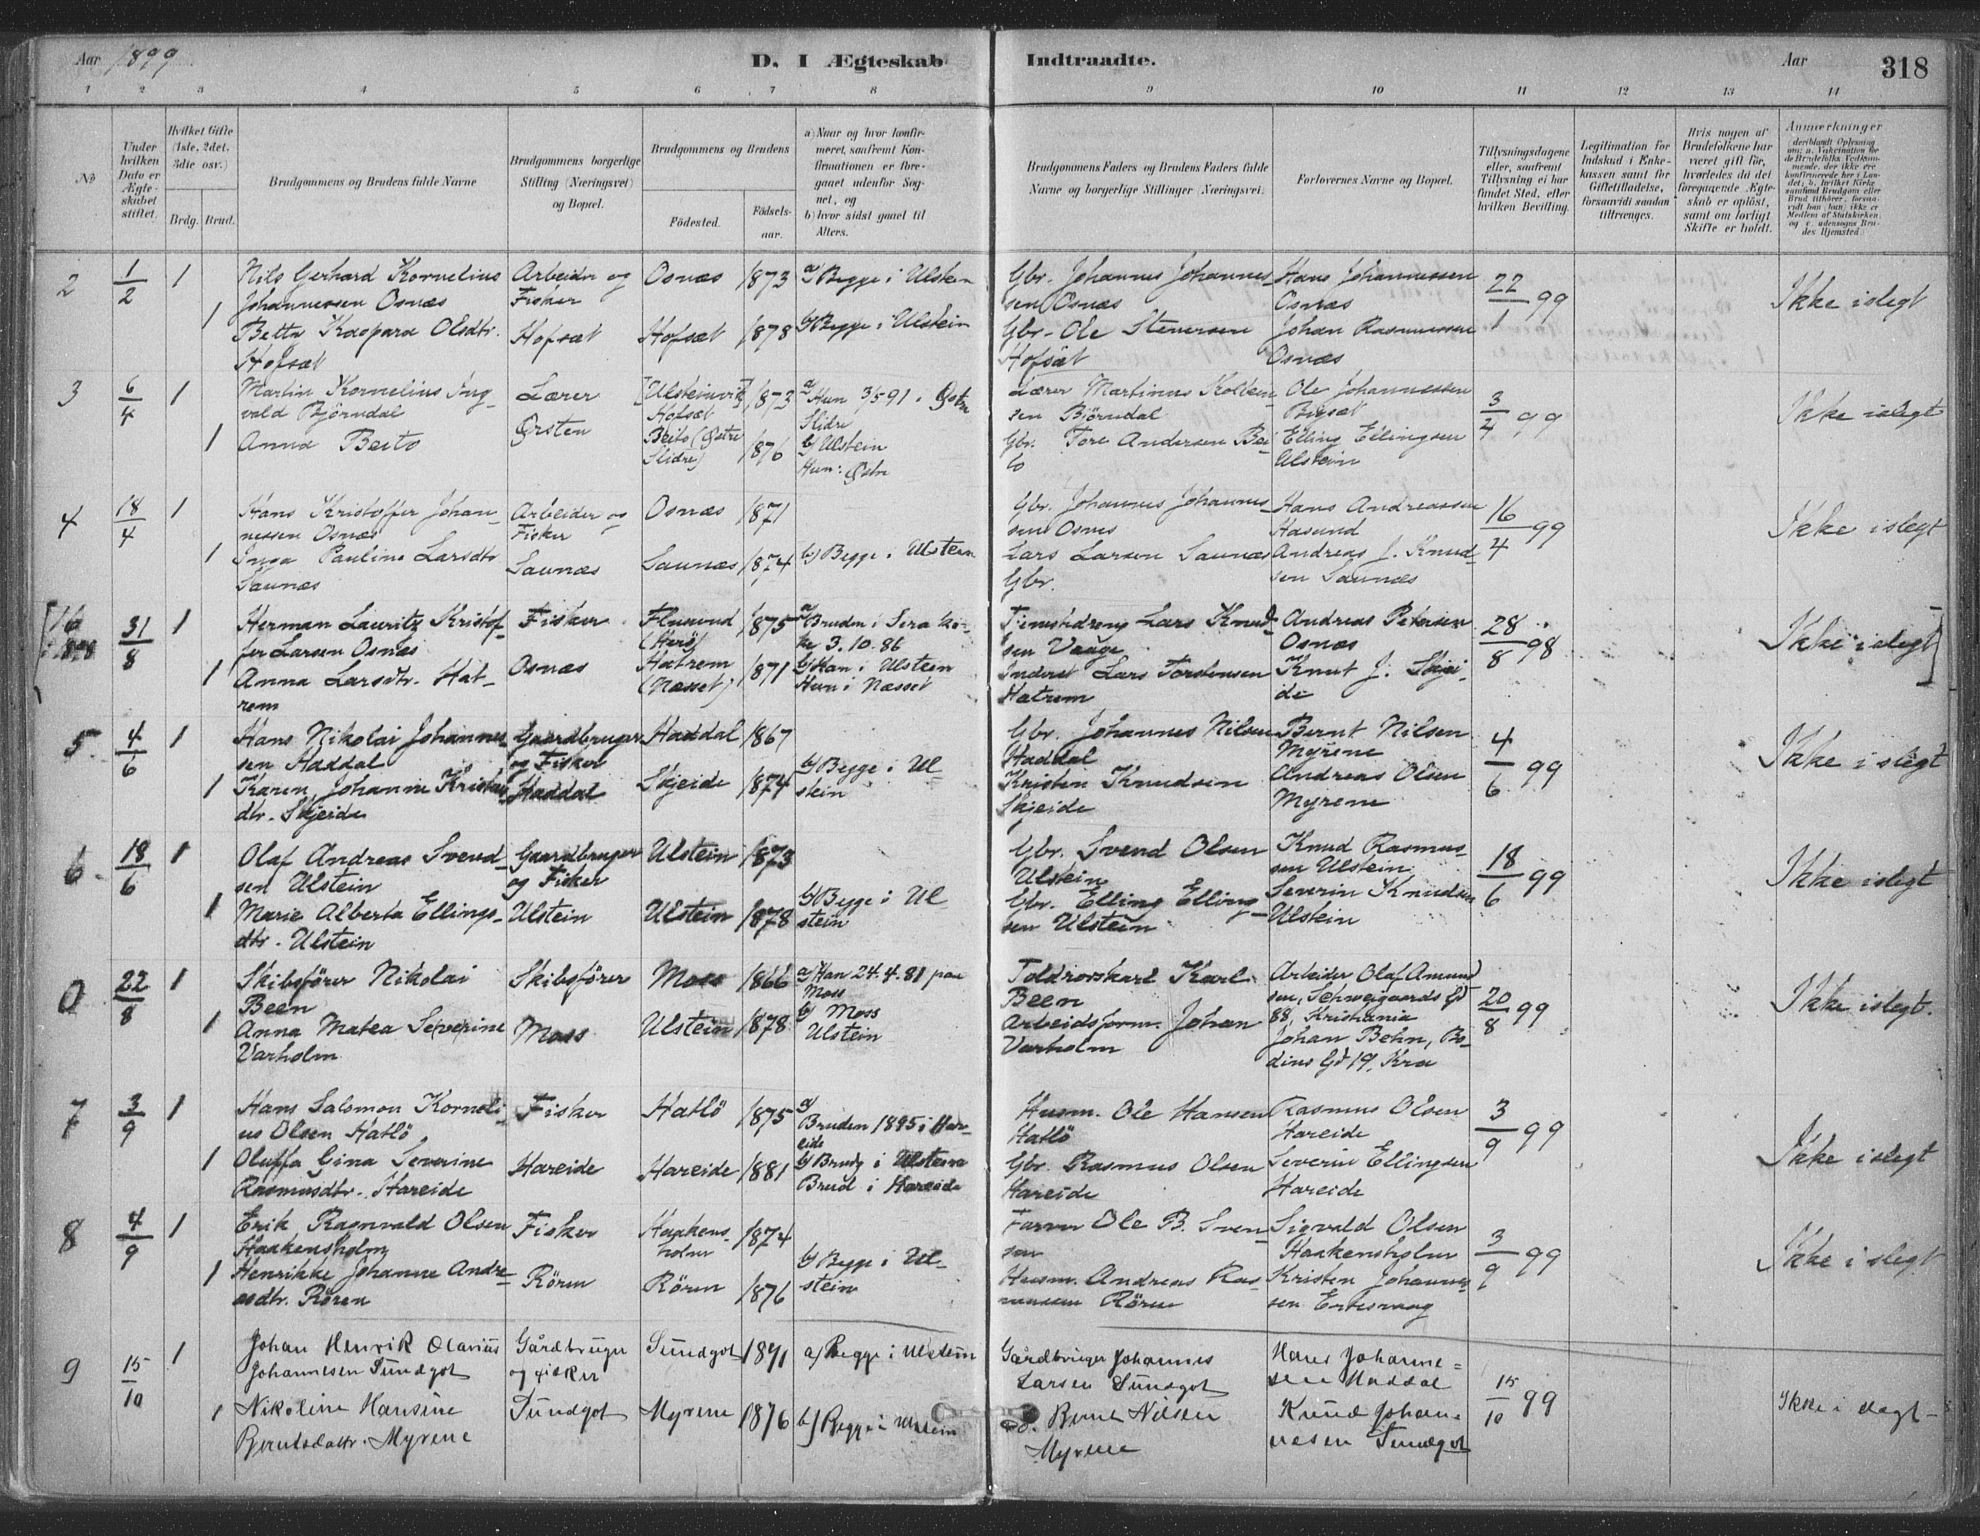 Aar 1899
D. I Ægteskab Indtraadte.
Aar 318
1 2 3 4 5 6 7 8 9 10 11 12 13 14
No
Under hvilken Dato er Ægteskabet stiftet.
Hvilket Gifte (1ste, 2det, 3die osv.)
Brdg. Brud.
Brudgommens og Brudens fulde Navne
Brudgommens borgerlige Stilling (Næringsvei) og Bopæl.
Brudgommens og Brudens
Fødested.
Fødselsaar.
a) Naar og hvor konfirmeret, saafremt Konfirmationen er foregaaet udenfor Sognet, og
b) hvor sidst gaaet til Alters.
Brudgommens Faders og Brudens Faders fulde Navne og borgerlige Stillinger (Næringsvei).
Forlovernes Navne og Bopæl.
Tillysningsdagene eller, saafremt Tillysning ei har fundet Sted, efter hvilken Bevilling.
Legitimation for Indskud i Enkekassen samt for Giftetilladelse, forsaavidt saadan tiltrænges.
Hvis nogen af Brudefolkene har været gift før, hvorledes da det foregaaende Ægteskab er opløst, samt om lovligt Skifte er holdt.
Anmærkninger
2 1/2 1 Nils Gerhard Kornelius Arbeider og Osnæs 1873 a) Begge i Ulstein Gbr. Johannes Johannes- Hans Johannessen 22/1 99 Ikke i slegt
Johannessen Osnæs Fisker sen Osnæs Osnæs
1 Bette Kaspara Olsdtr. Hofsæt Hofsæt 1878 b) Begge i Ulstein Gbr. Ole Stenersen Johan Rasmussen
Hofsæt Hofsæt Osnæs
3 6/4 1 Martin Kornelius Ing- Lærer [Ulsteinvik] 1873 a) Hun 3/5 91 i Østre Lærer Martinus Kolbein- Ole Johannessen 3/4 99 Ikke i slegt
vald Bjørndal Ørsten Hofsæt Slidre sen Bjørndal
1 Anna Beito Beito (Østre Slidre) 1876 b) Ulstein Gbr. Tore Andersen Bei- Elling Ellingsen
Hun: Østre to Ulstein
4 18/4 1 Hans Kristoffer Johan- Arbeider og Osnæs 1871 Gbr. Johannes Johannes- Hans Andreassen 16/4 99 Ikke i slegt
nessen Osnæs Fisker sen Osnes Hasund
1 Inga Pauline Larsdtr Saunæs Saunæs 1874 b) Begge i Ulstein Lars Larsen Saunæs Andreas J. Knud-
Saunæs Gbr. sen Saunæs
31/8 1 Herman Lauritz Kristof- Fisker Flusund 1875 a) Bruden i Sira kir- Lars Knud- Andreas Petersen 28/8 98 Ikke i slegt]
fer Larsen Osnæs (Herö) ke 3.10.86 sen Vaage Osnæs
1 Anna Larsdtr. Hat- Osnæs Hatrem 1871 b) Han i Ulstein Inderst Lars Torstensen Knut J. Skjei-
rem (Næsset) Hun i Næsset Hatrem de
5. 4/6 1 Hans Nikolai Johannes- Gaardbruger Haddal 1867 Gbr. Johannes Nilsen Bernt Nilsen 4/6 99 Ikke i slegt
sen Haddal og Fisker Haddal Myrene
1 Karen Johanne Kristens- Haddal Skjeide 1874 b) Begge i Ul- Kristen Knudsen Andreas Olsen
dtr. Skjeide stein Skjeide Myrene
6. 18/6 1 Olaf Andreas Svend- Gaardbruger Ulstein 1873 Gbr. Svend Olsen Knud Rasmus- 18/6 99 Ikke i slegt
sen Ulstein og Fisker Ulstein sen Ulstein
1 Marie Alberta Ellings- Ulstein Ulstein 1878 b) Begge i Ul- Gbr. Elling Elling- Severin Knudsen
dtr. Ulstein stein sen Ulstein Ulstein
0 22/8 1 Skibsfører Nikolai Skibsfører Moss 1866 a) Han 24.4.81 paa Karl Arbeider Olaf Amund- 20/8 99 Ikke i slegt.
Been Moss Been sen, Schweigaards Gd
1 Anna Matea Severine Moss Ulstein 1878 b) Moss Arbeidsform. Johan 88, Kristiania
Varholm Ulstein Varholm Johan Behn, Bo-
dins Gd 19, Kra
7 3/9 1 Hans Salomon Korneli- Fisker Hatlö 1875 a) Husm. Ole Hansen Rasmus Olsen 3/9 99 Ikke i slegt
us Olsen Hatlö Bruden 1895 i Har- eide Hatlö Hareide
1 Oluffa Gina Severine Hareide Hareide 1881 b) Brudg i Ulstein Gbr. Rasmus Olsen Severin Ellingsen
Rasmusdtr. Hareide Brud i Hareide Hareide Hareide
8 4/9 1 Erik Ragnvald Olsen Fisker Haakens- 1874 Ole B. Sven- Sigvald Olsen 3/9 99 Ikke i slegt
Haakensholm holm sen Haakensholm
1 Henrikke Johanne Andre- Rören Rören 1876 b) Begge i Ul- Husm. Andreas Ras- Kristen Johannes-
asdtr. Rören stein mussen Rören sen
9 15/10 1 Johan Henrik Olavius Gårdbruger Sundgot 1871 a) Begge i Ulstein Gårdbruger Johannes Hans Johanne- 15/10 99 Ikke i slegt
Johannesen Sundgot og Fisker Larsen Sundgot sen Haddal
1 Nikoline Hansine Sundgot Myrene 1876 b) Begge i Ulstein Do. Bernt Nilsen Knud Johan-
Berntsdattr. Myrene Myrene nesen Sundgot